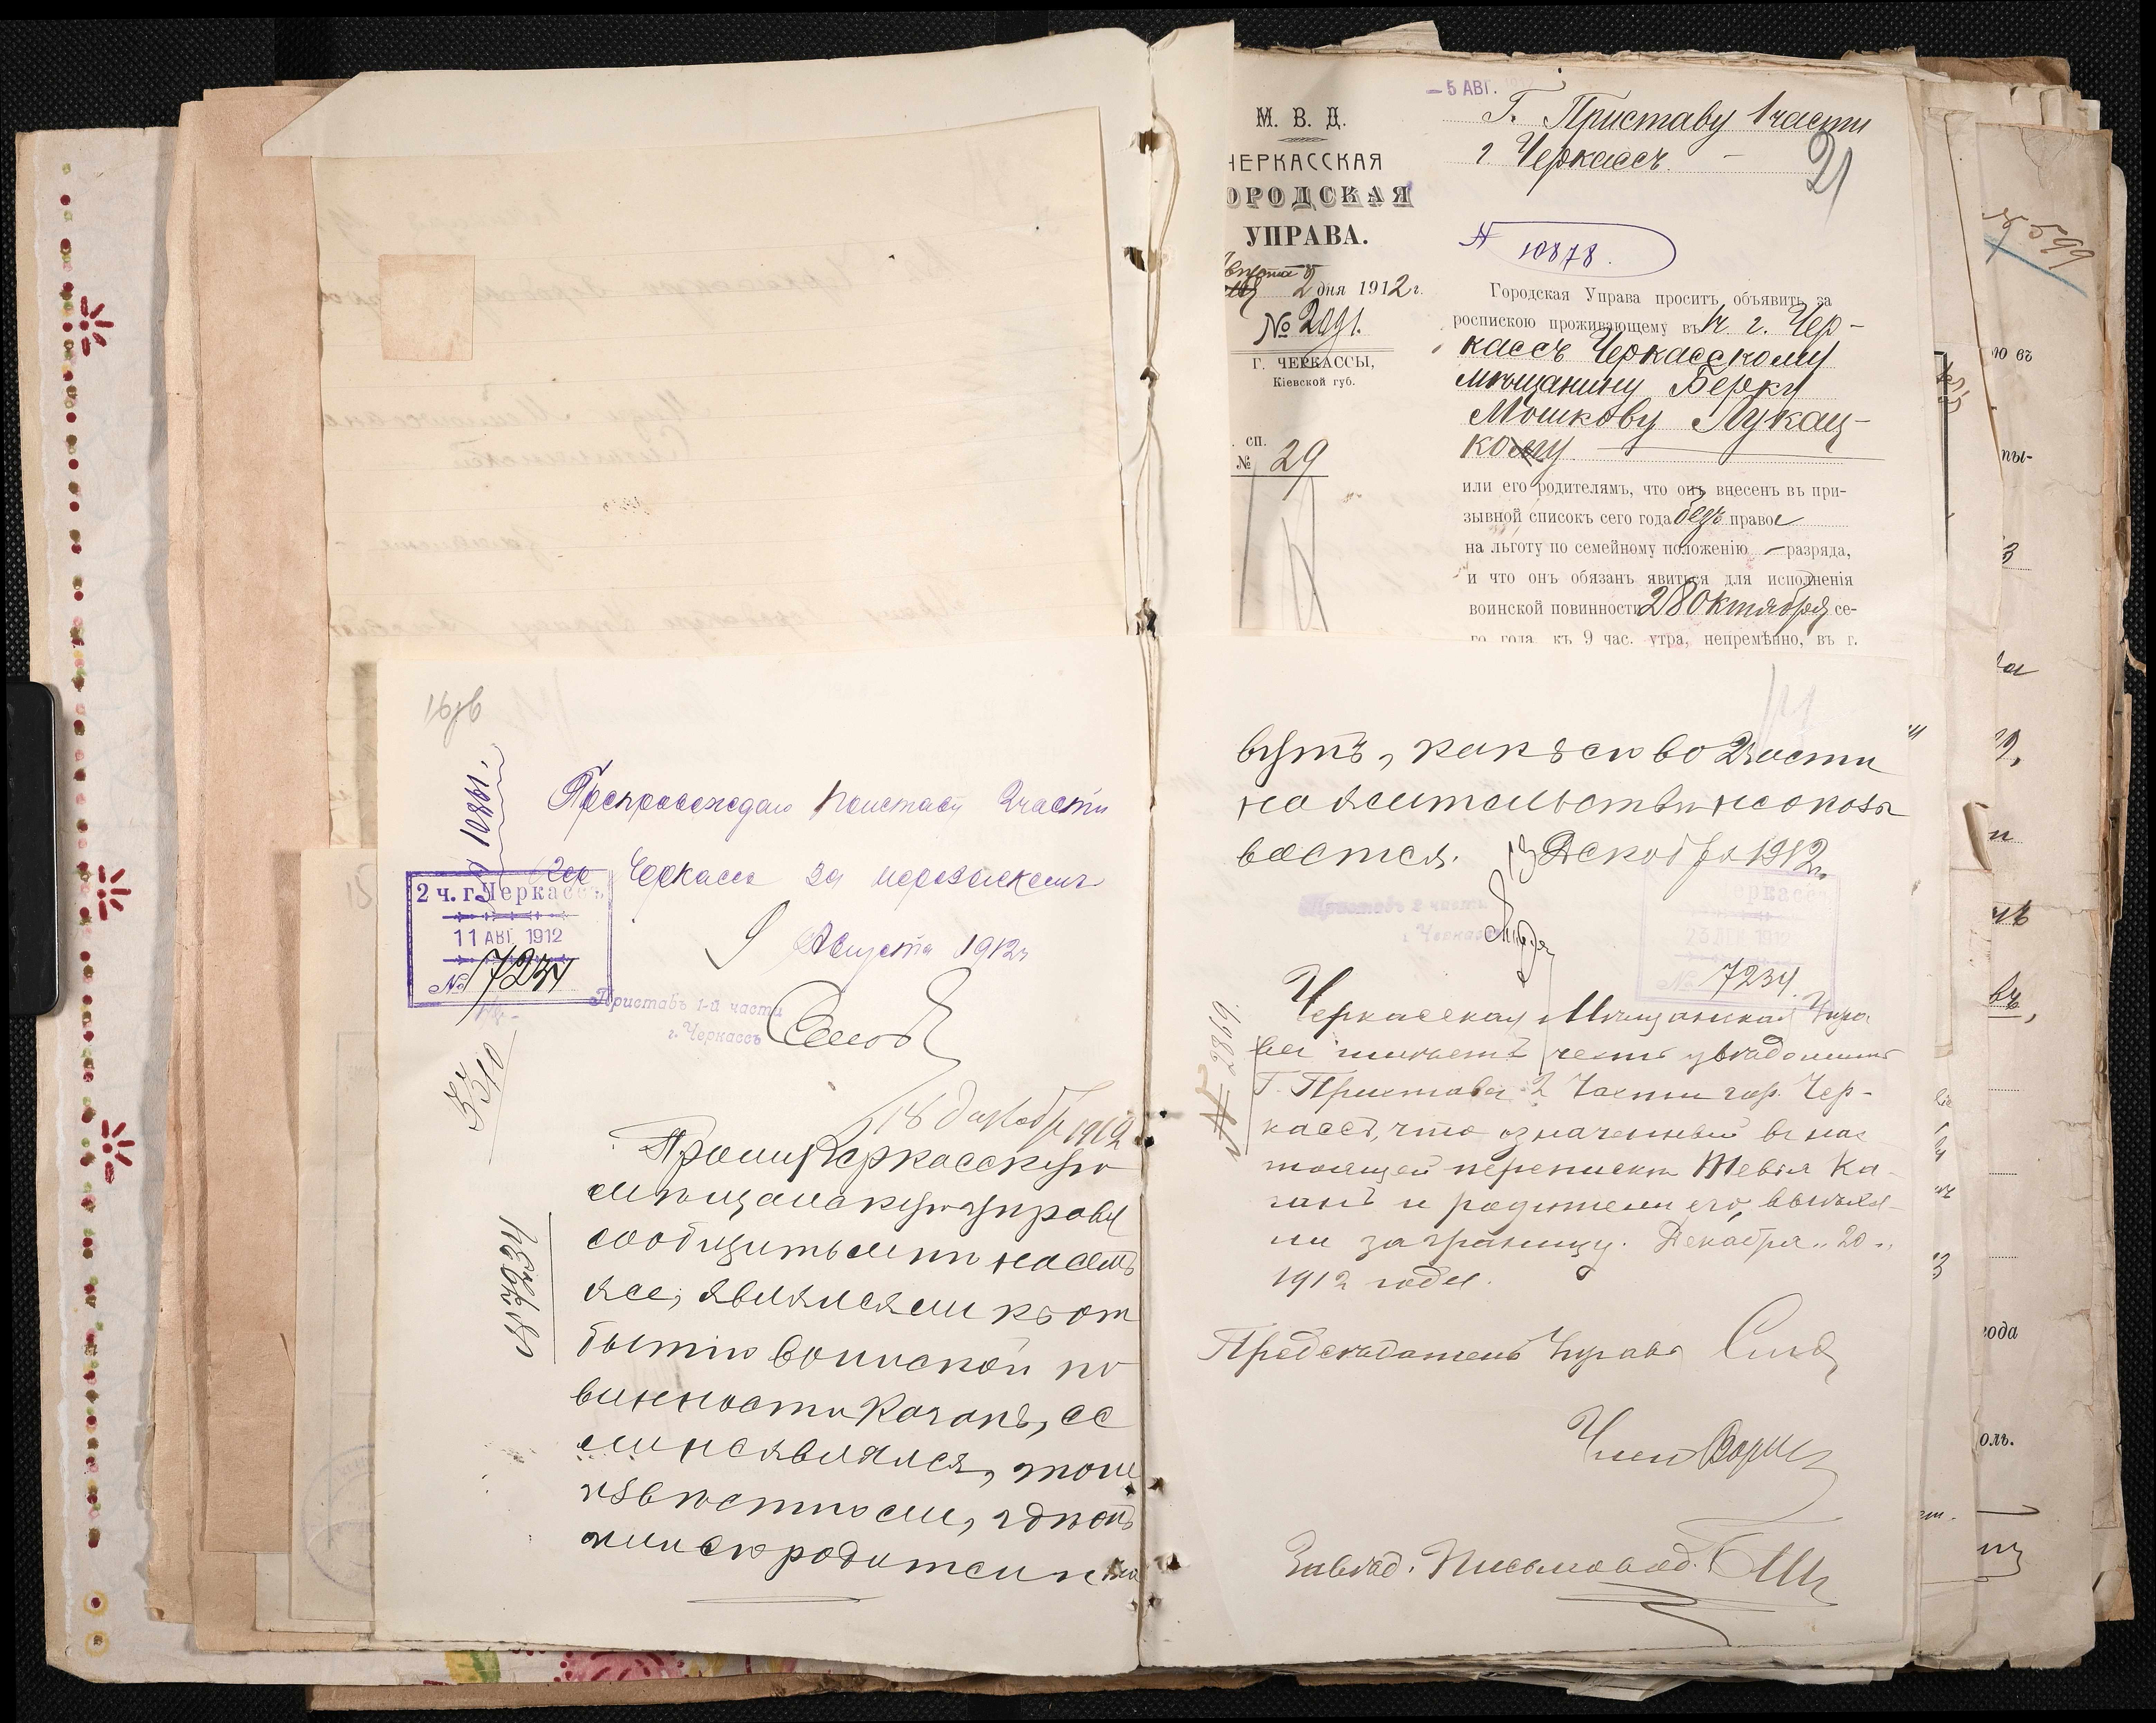 — 5 АВГ.
М. В. Д.
ЧЕРКАССКАЯ
ОРОДСКАЯ
УПРАВА.
Августа
2 дня 1912 г.
№ 2091.
Г. ЧЕРКАССЫ,
Кіевской губ.
сп.
№ 29
Г. Приставу 1 части
г. Черкассъ. —
21
N 10878.
Городская Управа проситъ объявить за
роспискою проживающему въ 1 ч. г. Чер-
кассъ Черкасскому
мѣщанину Берку
Мошкову Лукац-
кому
или его родителямъ, что онъ внесенъ въ при-
зывной списокъ сего года безъ права
на льготу по семейному положенію — разряда,
и что онъ обязанъ явиться для исполненія
воинской повинности 28 Октября се-
го года къ 9 час. утра, непремѣнно, въ г.
№ 599
16 об
10861.
Препровождаю Приставу 2 части
гор Черкассъ
9 Августа 1912 г
2 ч. г. Черкассъ
11 АВГ 1912
№ 7234
Приставъ 1-й части
г. Черкассъ
5310
18 декабр 1912
Прошу Черкасскую
мѣщанскую управу
сообщить мнѣ на семъ
же, являлся ли къ от
бытію воинской по
винности Каганъ, ес
ли не явился, то не
извѣстно ли, гдѣ онъ
или его родители жи
№ 7234
вутъ, какъ его во 2 части
на жительствѣ не оказы
вается. 13 Декабря 1912 г.
Приставъ 2 части
г. Черкассъ
ркассъ
23 ДЕК 1912
№ 7234
№ 2869.
Черкасская Мѣщанская Упра
ва имѣетъ честь увѣдомить
Г. Пристава 2 Части гор. Чер-
кассъ, что означенный въ нас
тоящей перепискѣ Тевья Ка-
ганъ и родители его, выѣха-
ли заграницу. Декабря „20„
1912 года.
Предсѣдатель Управы
Членъ
Завѣд. Письмовод.